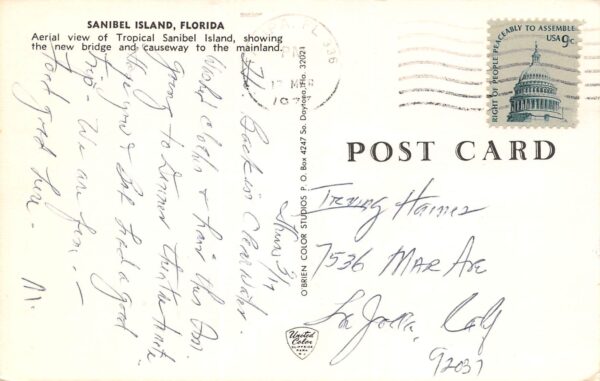 SANIBEL ISLAND, FLORIDA
Aerial view of Tropical Sanibel Island, showing
the new bridge and causeway to the mainland.
FL 336
PM
17
O'BRIEN COLOR STUDIOS P. O. Box 4247 So. Daytona, Fla. 32021
RIGHT OF PEOPLE PEACEABLY TO ASSEMBLE
USA 9c
POST CARD
Thurs 3/17
Hi! Back in Clearwater.
Washed clothes & have this
going to Dinner theatre tonite.
Hope you & Bob had a good
trip - We are fine. -
Food good here.
M.
Irving Haines
7536 Mar Ave
La Jolla, Calif
92037
United
Color